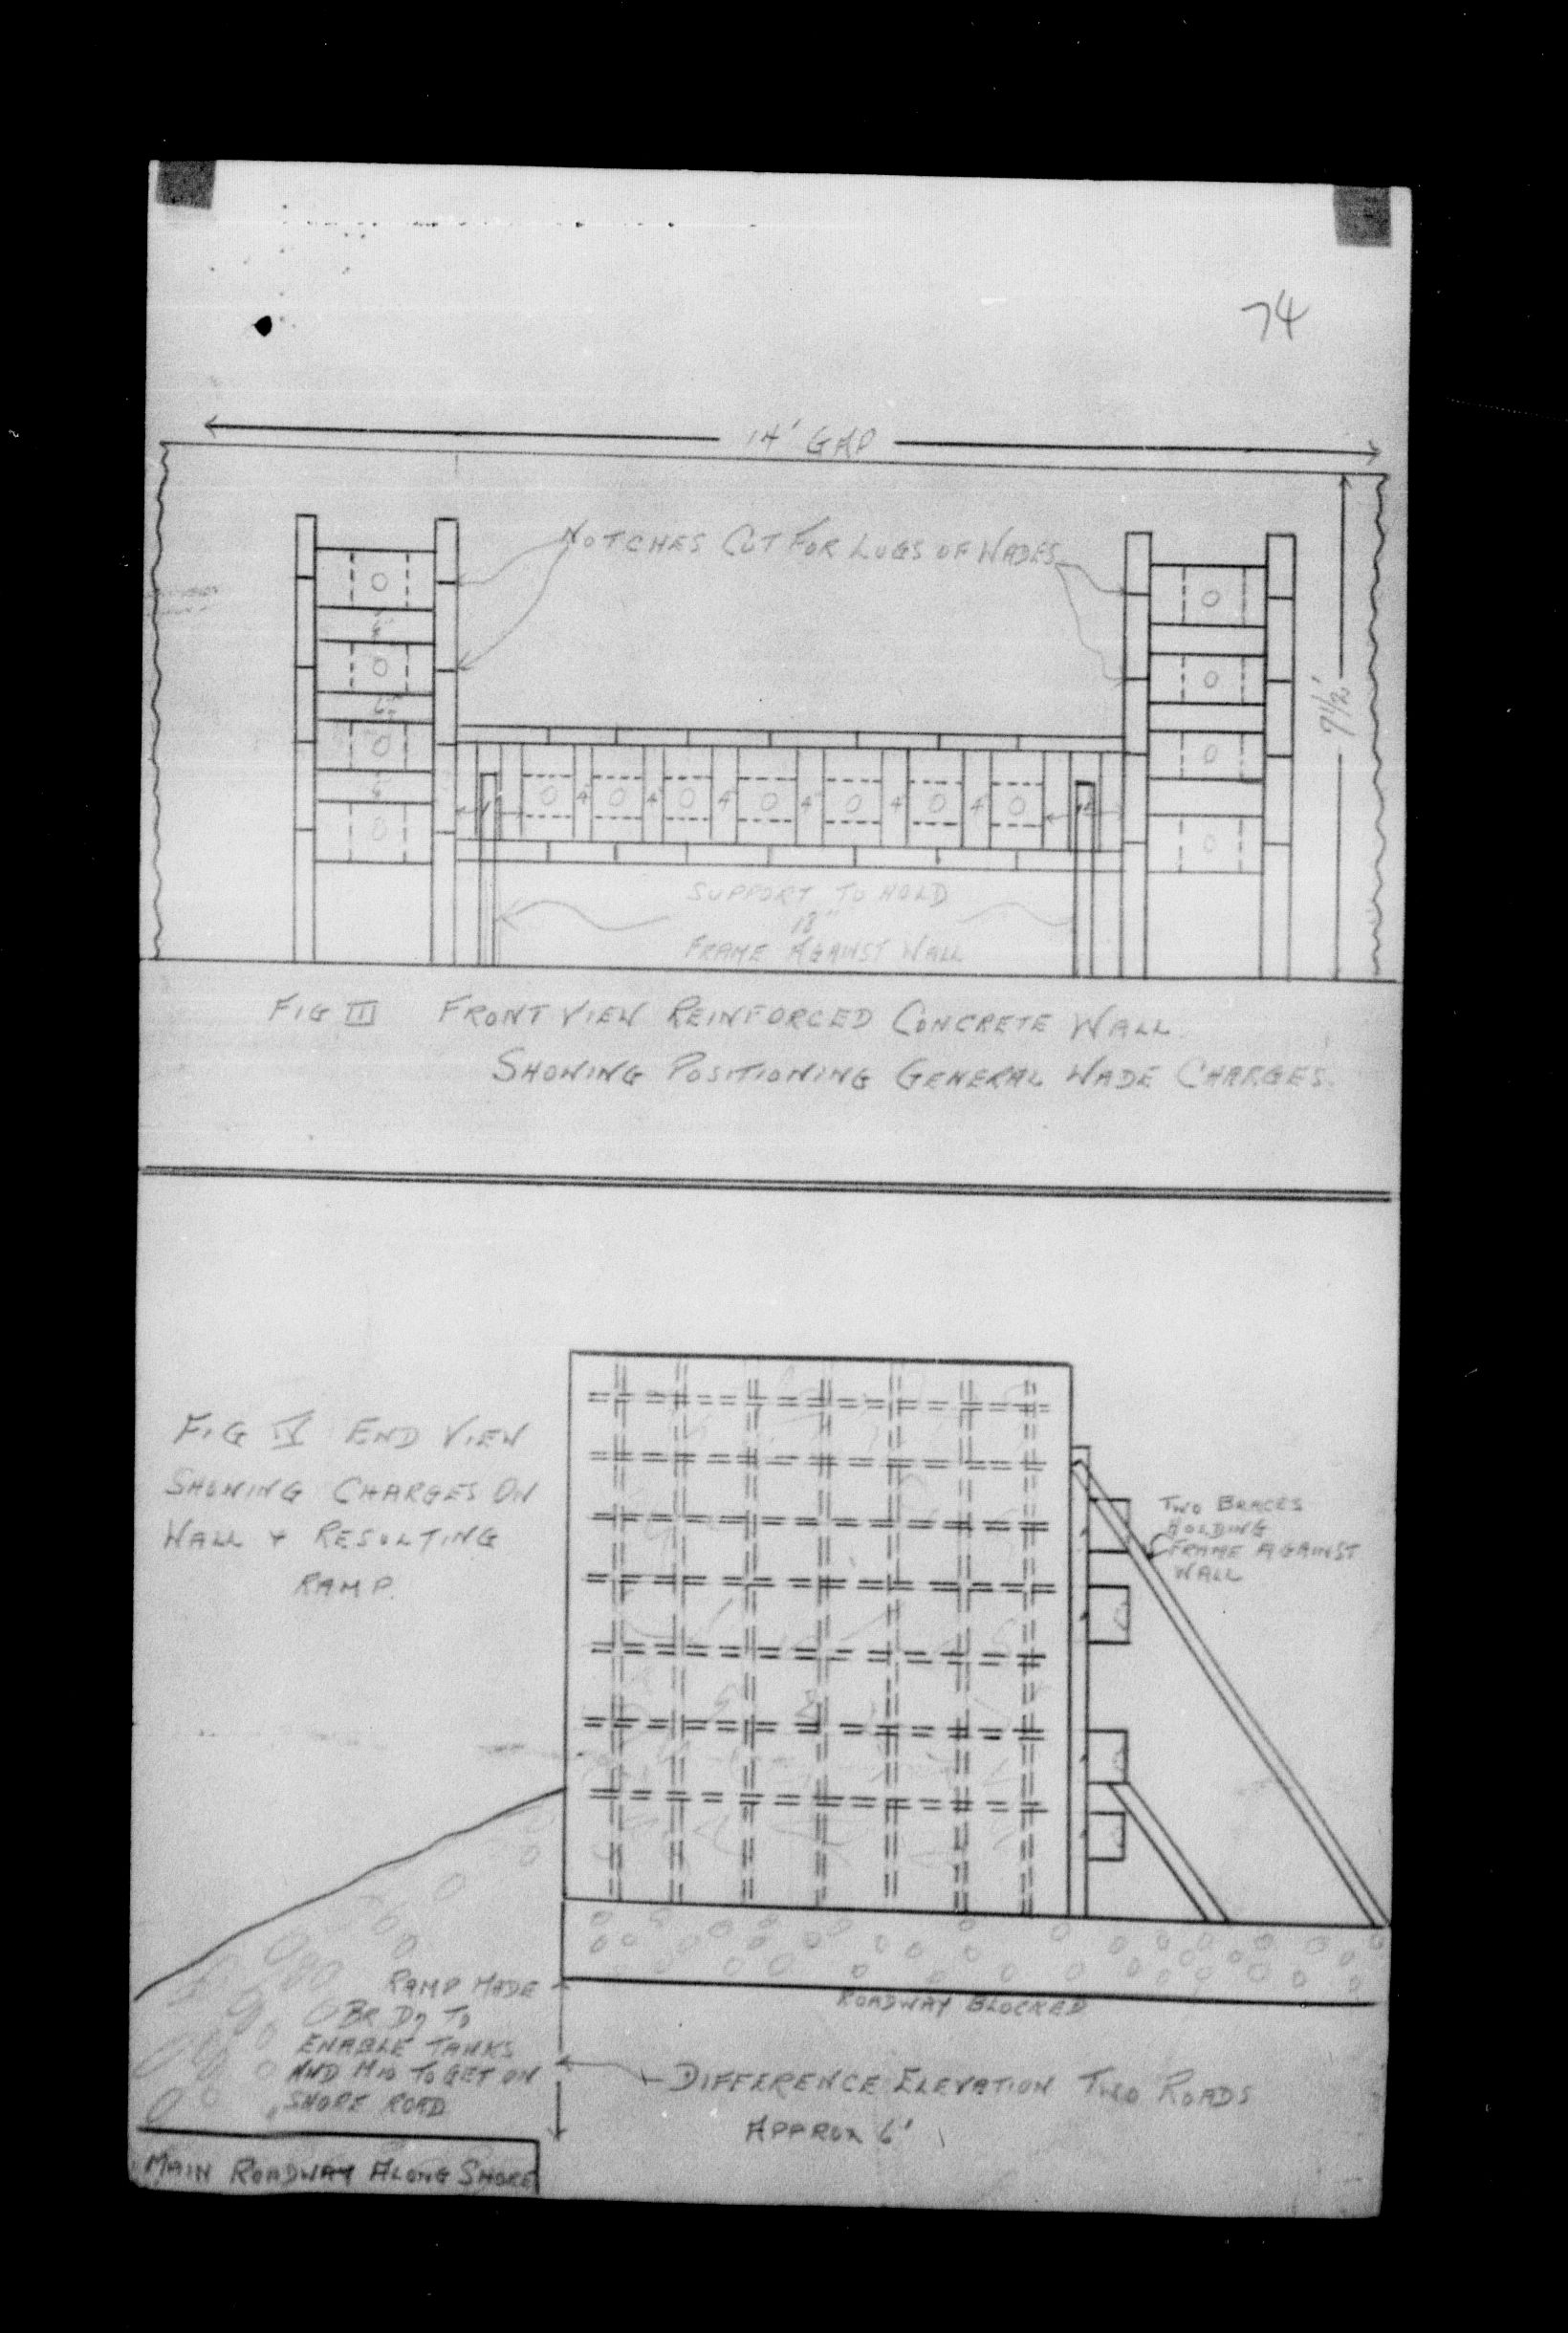 74
14' GAP
NOTCHES CUT FOR LUGS OF WADES
7½'
0 0
0 0
0 0
0 4 0 4 0 4 0 4 0 4 0 4 0
0 0
SUPPORT TO HOLD
18"
FRAME AGAINST WALL
FIG III FRONT VIEW REINFORCED CONCRETE WALL
SHOWING POSITIONING GENERAL WADE CHARGES.
FIG IV END VIEW
SHOWING CHARGES ON
WALL & RESULTING
RAMP.
TWO BRACES
HOLDING
FRAME AGAINST
WALL
RAMP MADE
TO
ENABLE TANKS
AND TO GET ON
SHORE ROAD
ROADWAY BLOCKED
DIFFERENCE ELEVATION TWO ROADS
APPROX 6'
MAIN ROADWAY ALONG SHORE